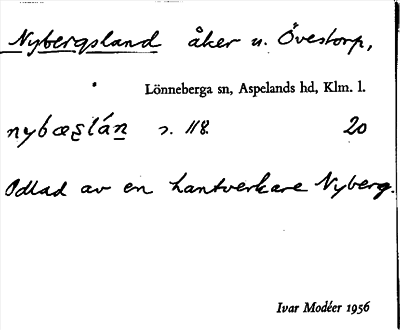 Nybergsland åker u. Övestorp,
Lönneberga sn, Aspelands hd, Klm. l.
nybæs̱lán̠ s. 118. 20
Odlad av en hantverkare Nyberg.
Ivar Modéer 1956